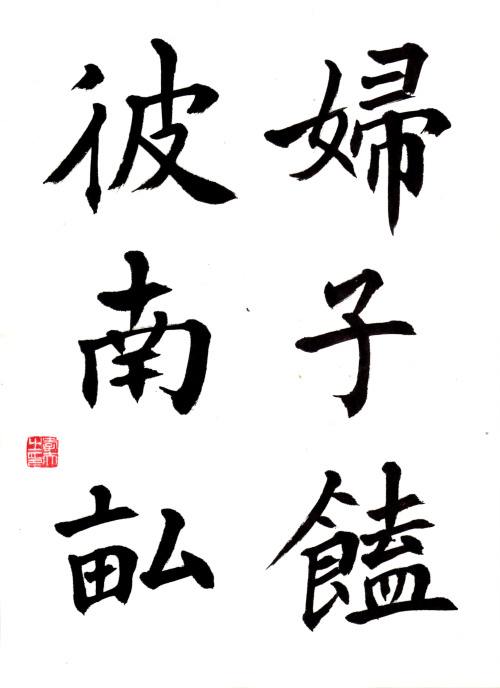 婦子饁
彼南畆